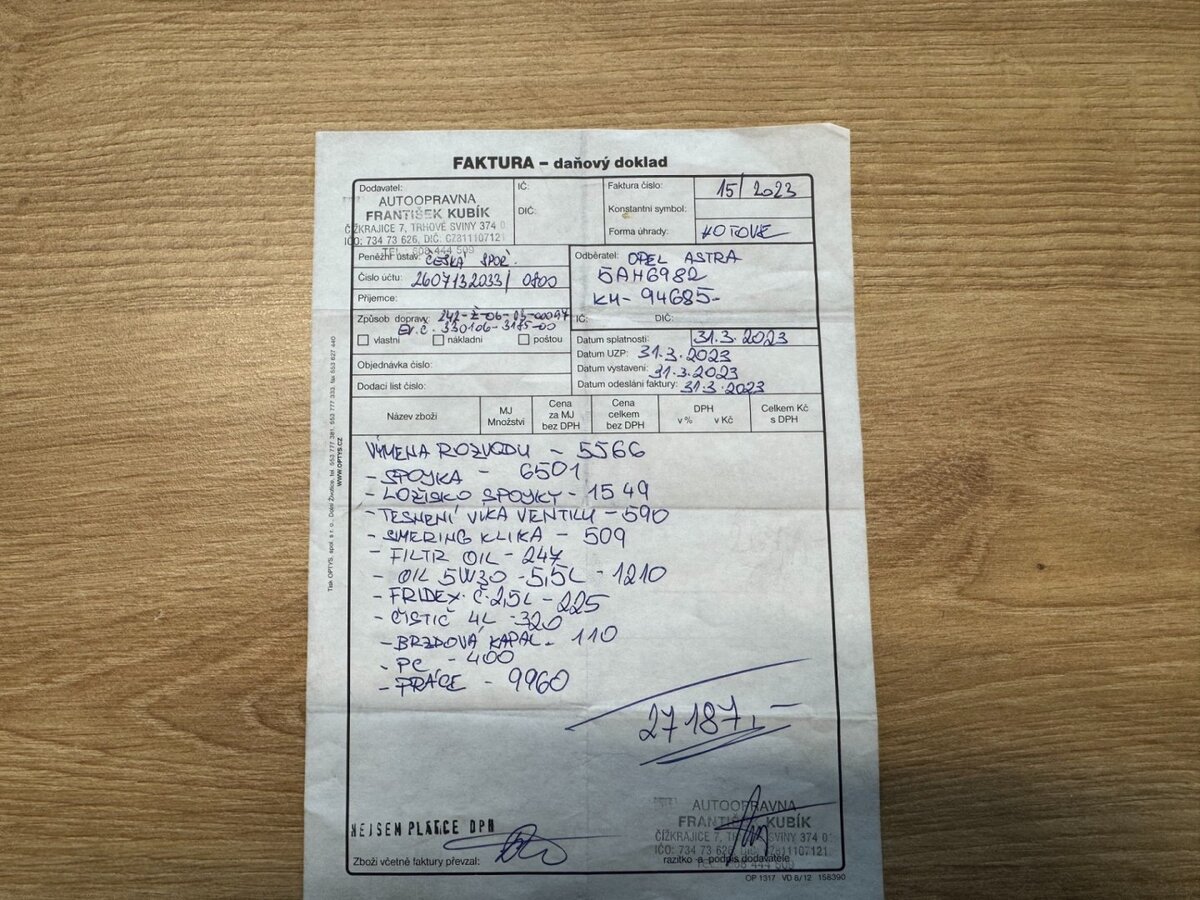 FAKTURA – daňový doklad
Dodavatel:
AUTOOPRAVNA
FRANTIŠEK KUBÍK
ČÍŽKRAJICE 7, TRHOVÉ SVINY 374 0
IČO: 734 73 626, DIČ: CZ8111107121
TEL.: 608 444 509
IČ:
DIČ:
Faktura číslo: 15/2023
Konstantní symbol:
Forma úhrady: HOTOVĚ
Peněžní ústav: ČESKÁ SPOŘ.
Číslo účtu: 2607132033/0800
Příjemce:
Způsob dopravy: 242-Ž-06-03-00097
EV.Č. 330106-3185-00
vlastní nákladní poštou
Objednávka číslo:
Dodací list číslo:
Odběratel: OPEL ASTRA
5AH6982
KM- 94685-
IČ: DIČ:
Datum splatnosti: 31.3.2023
Datum UZP: 31.3.2023
Datum vystavení: 31.3.2023
Datum odeslání faktury: 31.3.2023
Název zboží
MJ
Množství
Cena
za MJ
bez DPH
Cena
celkem
bez DPH
DPH
v % v Kč
Celkem Kč
s DPH
VÝMĚNA ROZVODU - 5566
- SPOJKA - 6501
- LOŽISKO SPOJKY - 1549
- TESNENÍ VÍKA VENTILU - 590
- SMERING KLIKA - 509
- FILTR OIL - 247
- OIL 5W30 - 5,5L - 1210
- FRIDEX Č. 2,5L - 225
- ČISTIČ 4L - 320
- BRZDOVÁ KAPAL. 110
- PC - 400
- PRÁCE - 9960
27187,-
NEJSEM PLÁTCE DPH
Zboží včetně faktury převzal:
AUTOOPRAVNA
FRANTIŠEK KUBÍK
ČÍŽKRAJICE 7, TRHOVÉ SVINY 374 0
razítko a podpis dodavatele
OP 1317 VD 8/12 158390
WWW.OPTYS.CZ